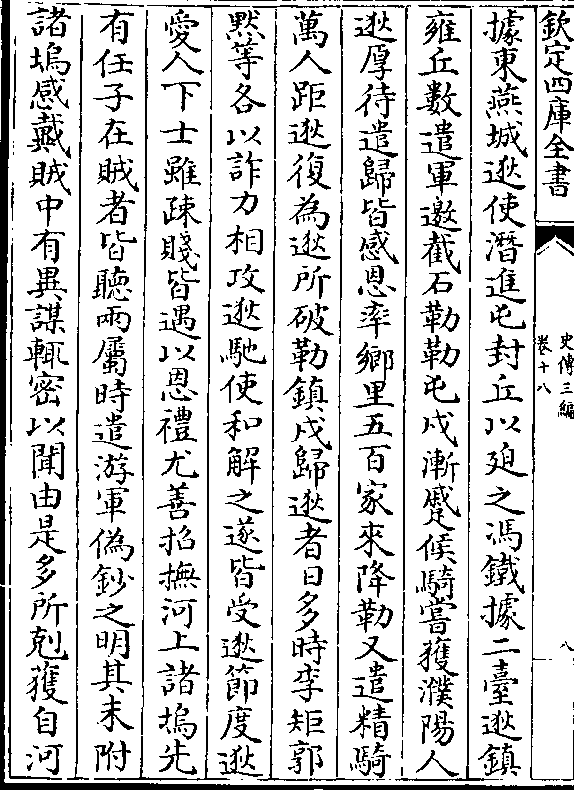 欽定四庫全書
史傳三編
卷十八
八
據東燕城逖使潛進屯封丘以廹之馮鐵據二臺逖鎮
雍丘數遣軍邀截石勒勒屯戍漸蹙候騎嘗獲濮陽人
逖厚待遣歸皆感恩率鄉里五百家來降勒又遣精騎
萬人距逖復為逖所破勒鎮戍歸逖者日多時李矩郭
黙等各以詐力相攻逖馳使和解之遂皆受逖節度逖
愛人下士雖疎賤皆遇以恩禮尤善招撫河上諸塢先
有任子在賊者皆聽兩屬時遣游軍偽鈔之明其未附
諸塢感戴賊中有異謀輒密以聞由是多所剋獲自河